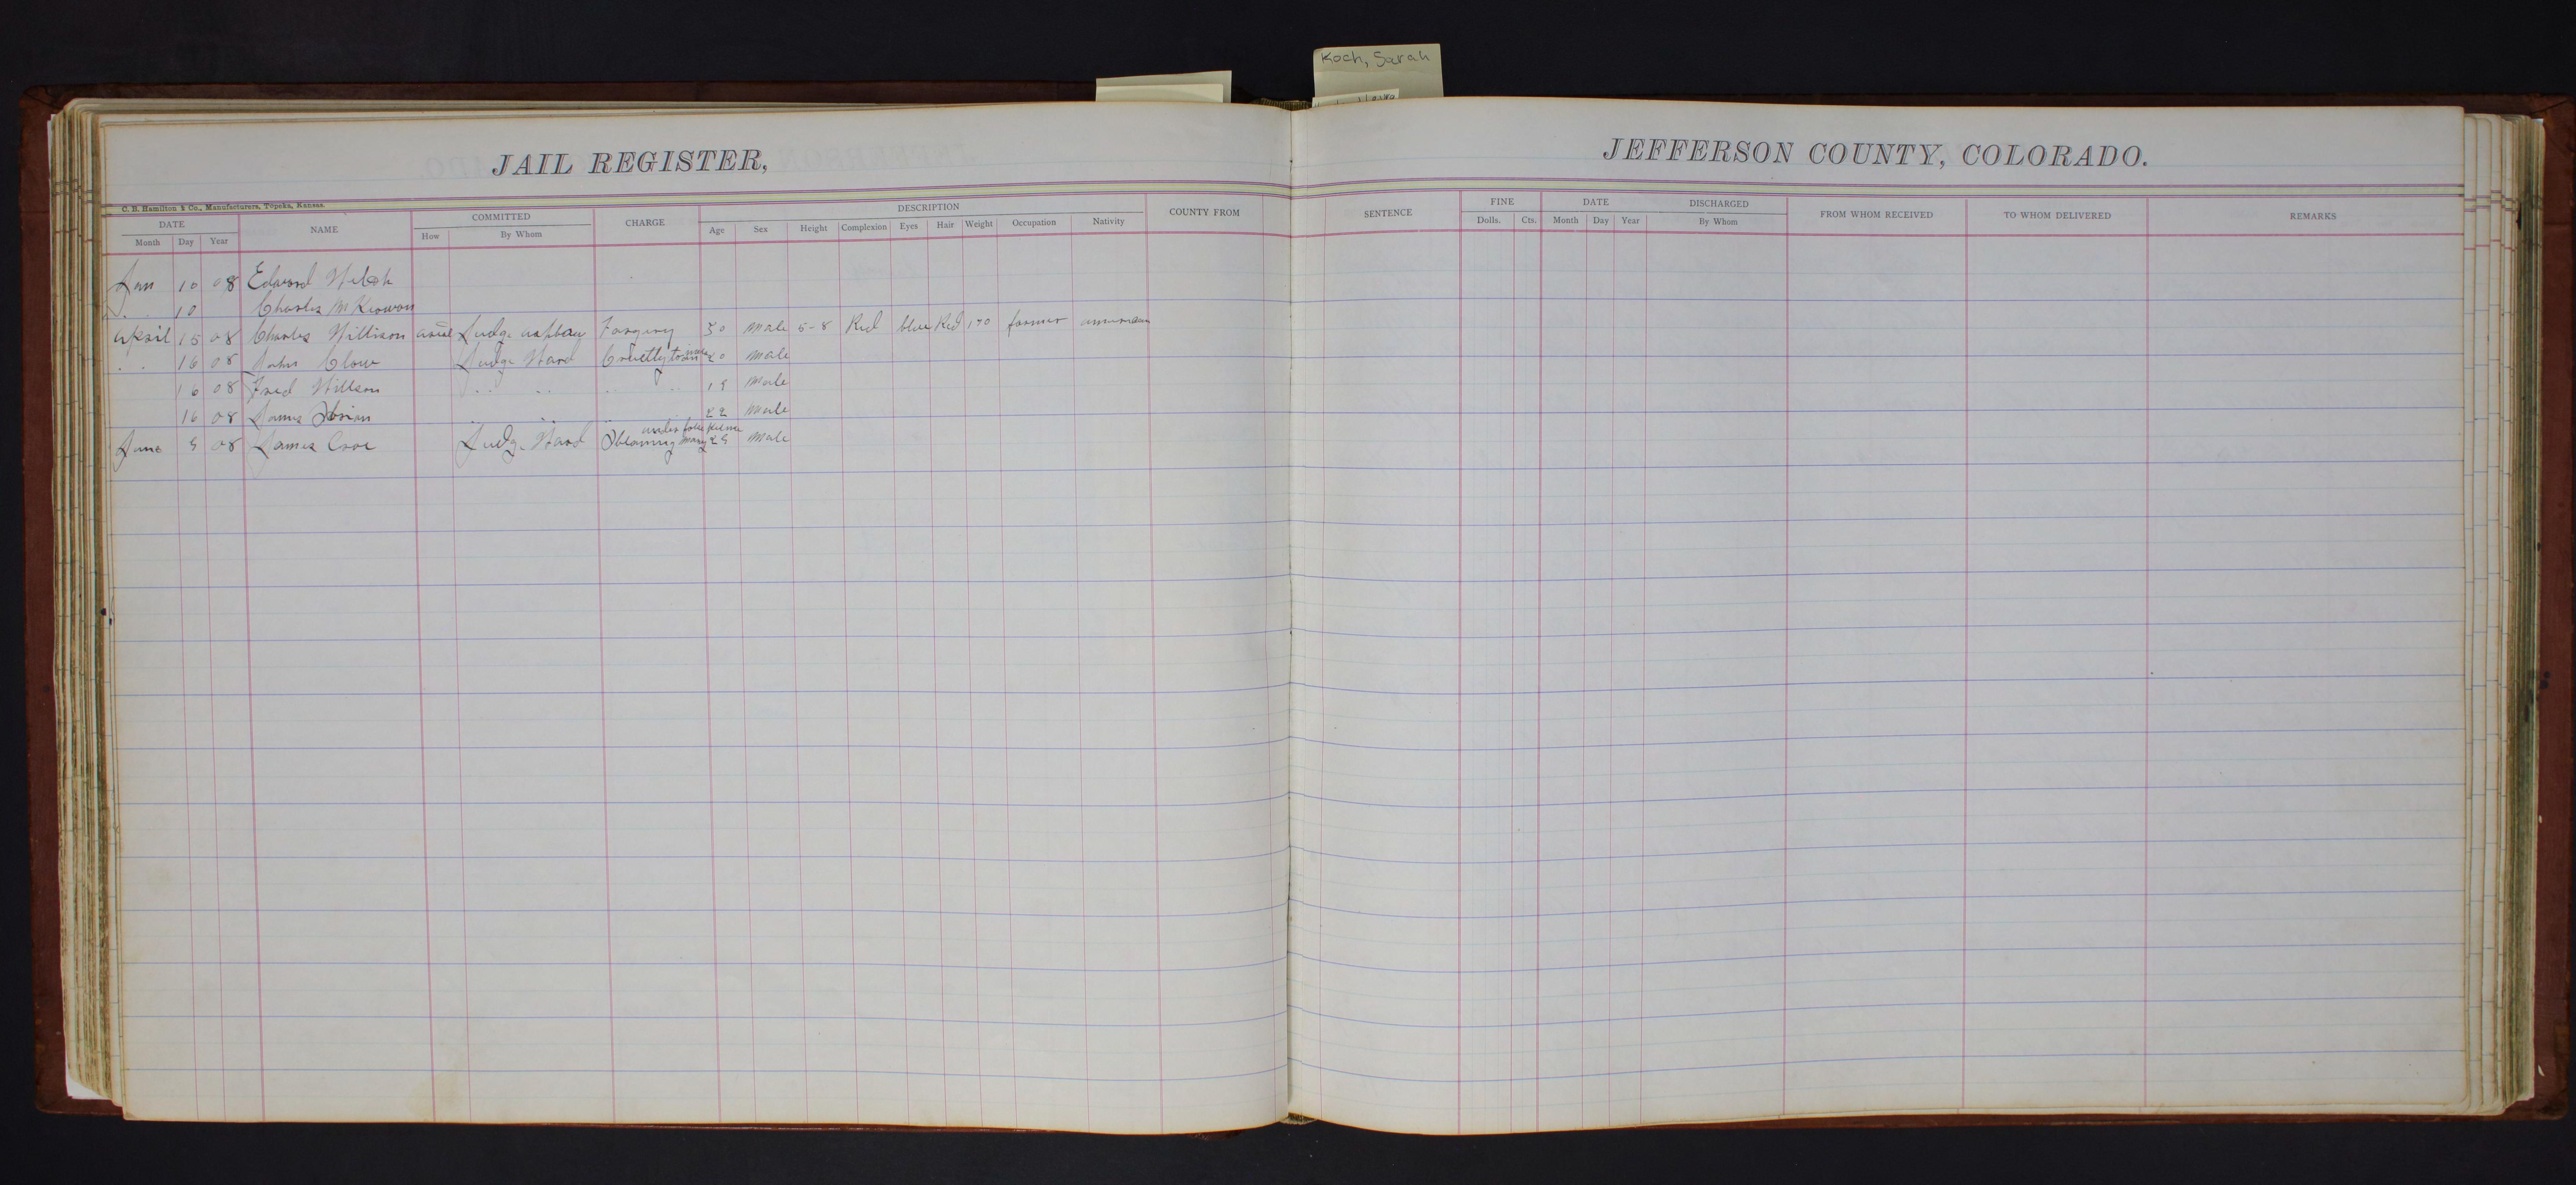 Koch, Sarah
JAIL REGISTER,
JEFFERSON COUNTY, COLORADO.
C. B. Hamilton & Co., Manufacturers, Topeka, Kansas.
DATE NAME COMMITTED CHARGE DESCRIPTION COUNTY FROM SENTENCE FINE DATE DISCHARGED FROM WHOM RECEIVED TO WHOM DELIVERED REMARKS
Month Day Year How By Whom Age Sex Height Complexion Eyes Hair Weight Occupation Nativity Dolls. Cts. Month Day Year By Whom
Jan 10 08 Edward Welch
" 10 Charles McKeowan
April 15 08 Charles Willison Judge Forgery 30 male 5-8 Red blue Red 170 farmer american
" " 16 08 John Clow Judge Ward Cruelty to animals 20 male
16 08 Fred Willson " " " " 19 male
16 08 James " " " 22 male
June 9 08 James Judge Ward under false Male